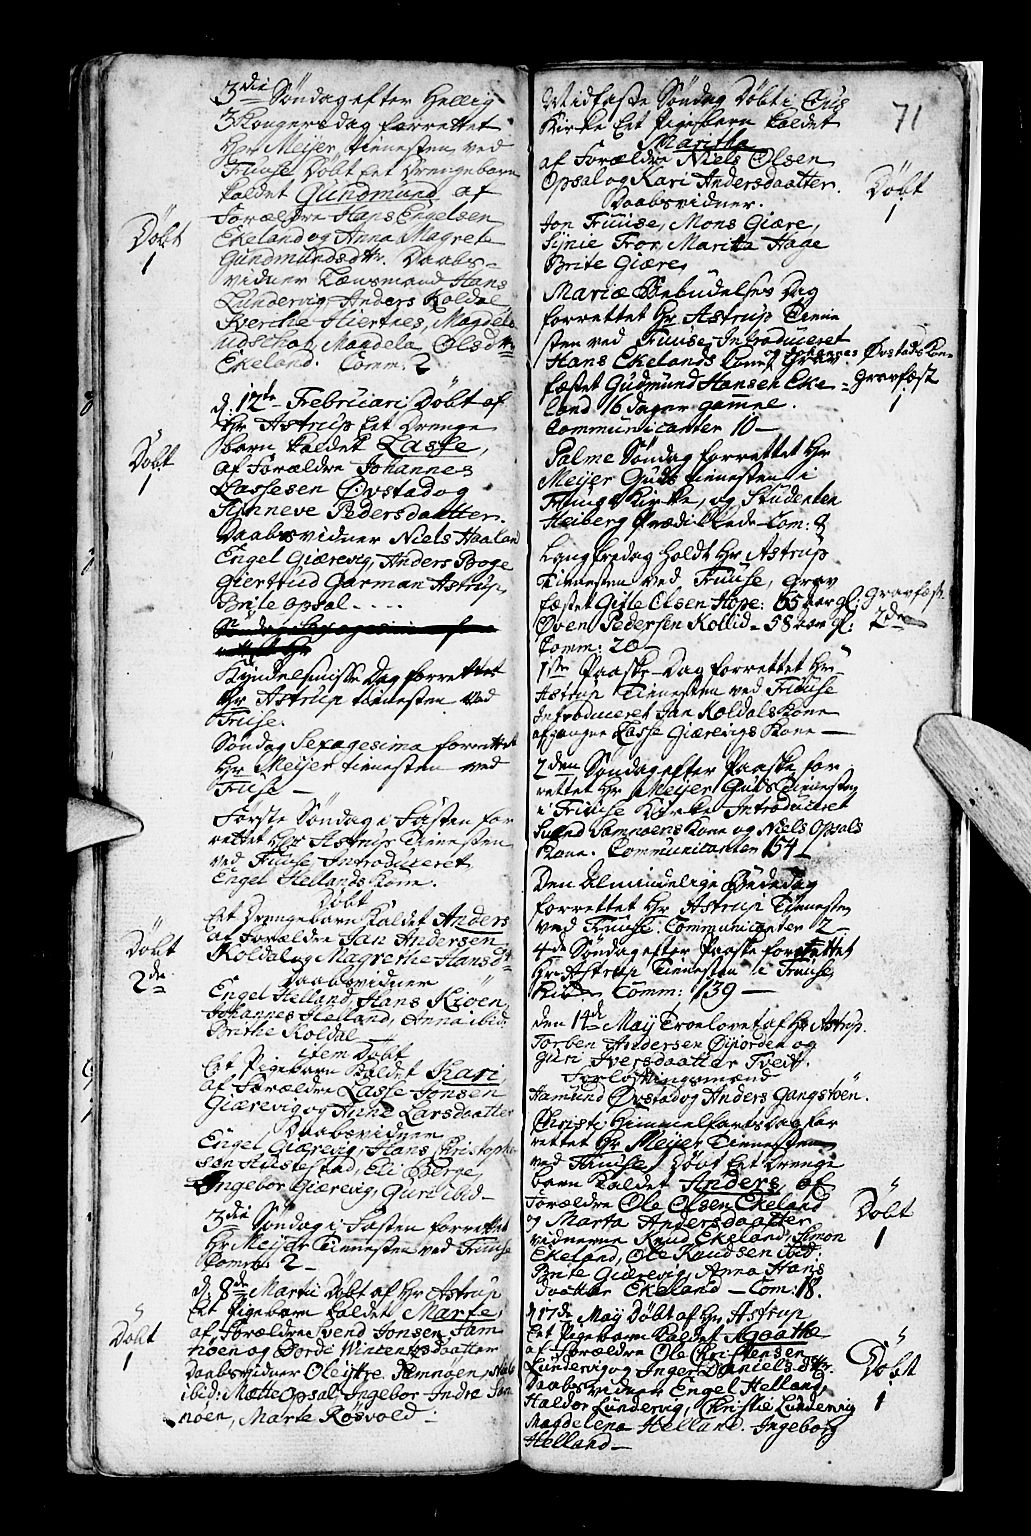 3die Søndag efter Hellig
3 Kongersdag forrettet
Hr Meijer tienesten ved
Fuuse Døbt Eet Drengebarn
kaldet Gundmund af
Forældre Hans Engelsen
Ekeland og Anna Magrete
Gundmundsdtr. Daabs-
vidner Lensmand Hans
Lundervig Anders Koldal
Sverche Hiertnes, Magdela
Magdela Olsdtr
Ekeland. Comm. 2
Døbt
1
d. 12te Februari Døbt af
Hr Astrup Eet Drenge
barn kaldet Lasse,
af Forældre Johannes
Lassesen Øvstad og
Sinneve Pedersdaatter.
Daabsvidner Niels Haaland
Engel Giærevig, Anders Boge
Giertrud Garman Astrup,
Brite Opsal - - - -
Døbt
1
Kyndelmisse Dag forrettet
Hr Astrup tienesten ved
Fuuse.
Søndag Sexagesima forrettet
Hr Meijer tienesten ved
Fuuse -
Første Søndag i Fasten for
rettet Hr Astrup Tienesten
ved Fuuse, Introduceret
Engel Hellands Kone.
Døbt
Eet Drengebarn Kaldet Anders
af Forældre Jan Andersen
Koldal og Magrethe Hansdtr
Daabsvidner
Engel Helland, Hans Kioen,
Johannes Helland, Anna ibid
Brithe Koldal
Døbt
2de
item Døbt
Eet Pigebarn Kaldet Kari,
af Forældre Lasse Jonsen
Giærevig og Anne Larsdaatter
Daabsvidner
Engel Giærevig, Hans Christophe
sen Eli Berge,
Ingebor Giærevig, Guri ibid -
3die Søndag i Fasten forrettet
Hr Meijer Tienesten ved Fuuse
Comm: 2 -
d. 8de Martii Døbt af Hr Astrup
Eet Pigebarn kaldet Marte,
af Forældre Svend Jonsen Sam
nøen og Dorde Wintersdaatter
Daabsvidner Ole Samnøen,
ibid: Matte Opsal, Ingebor Indre Sam
nøen, Marte Røsvold -
Døbt
1
71
Midfaste Søndag Døbt i Ous
Kirke Eet Pigebarn kaldet
Maritha
af Forældre Niels Olsen
Opsal og Kari Andersdaatter.
Daabsvidner.
Jon Fuuse, Mons Giøre,
Marita Hage
Brite Giøre,
Døbt
1
Mariæ Bebudelses Dag
forrettet Hr Astrup Tiene
sten ved Fuuse, Introduceret
Hans Ekelands Kone og Johannes Øvstads Kone
Grav
fæstet Gudmund Hansen Eke
land 16 dager gamel.
Communicanter 10 -
Gravfæst
1
Palme Søndag forrettet Hr
Meijer Guds tienesten i
Fuuse Kirke, og Studenten
Heiberg Prædikkede Com: 8
Langfredag holdt Hr Astrup
Tienesten ved Fuuse, Grav
fæstet Gitle Olsen Hope: 65 aar gl:
Øven Pedersen Kollid - 58 aar gl:
Comm: 20 -
Gravfæst
2de
1ste Paaske-Dag forrettet Hr
Astrup Tienesten ved Fuuse
Introduceret Jan Koldals Kone
afgangne Lasse Giærevigs Kone -
2den Søndag efter Paaske for
rettet Hr Meijer Guds Tienesten
i Fuuse Kirke Introduceret
Svend Samnøens Kone og Niels Opsals
Kone. Communicanter 54
Den Almindelige Bededag
forrettet Hr Astrup Tienesten
ved Fuuse. Communicanter 12
4de Søndag efter Paaske forrettet
Hr Astrup Tienesten i Fuuse
Comm: 139 -
den 14de Maij Troelovet af Hr Astrup.
Torben Andersen og
Guri Iversdaatter Tveit.
Forlovningsmænd
Hamund Øvstad og Anders Gangstøen.
Christi Himmelfarts Dag for
rettet Hr Meijer Tienesten
ved Fuuse, Døbt Eet Drenge
barn Kaldet Anders, af
Forældre Ole Olsen Ekeland
og Marta Andersdaatter
vidnerne Knud Ekeland, Simon
Ekeland, Ole Knudsen ibid:
Brite Giærevig, Anna Hans
daatter Ekeland - Com: 18.
Døbt
1
d 17de Maij Døbt af Hr Astrup
Eet Pigebarn Kaldet Agaathe
af Forældre Ole Christensen
Lundervig og Inger Danielsdtr.
Daabsvidner Engel Helland,
Haldor Lundervig, Christie Lundervig
Magdelena Helland. Ingeborg
Helland -
Døbt
1